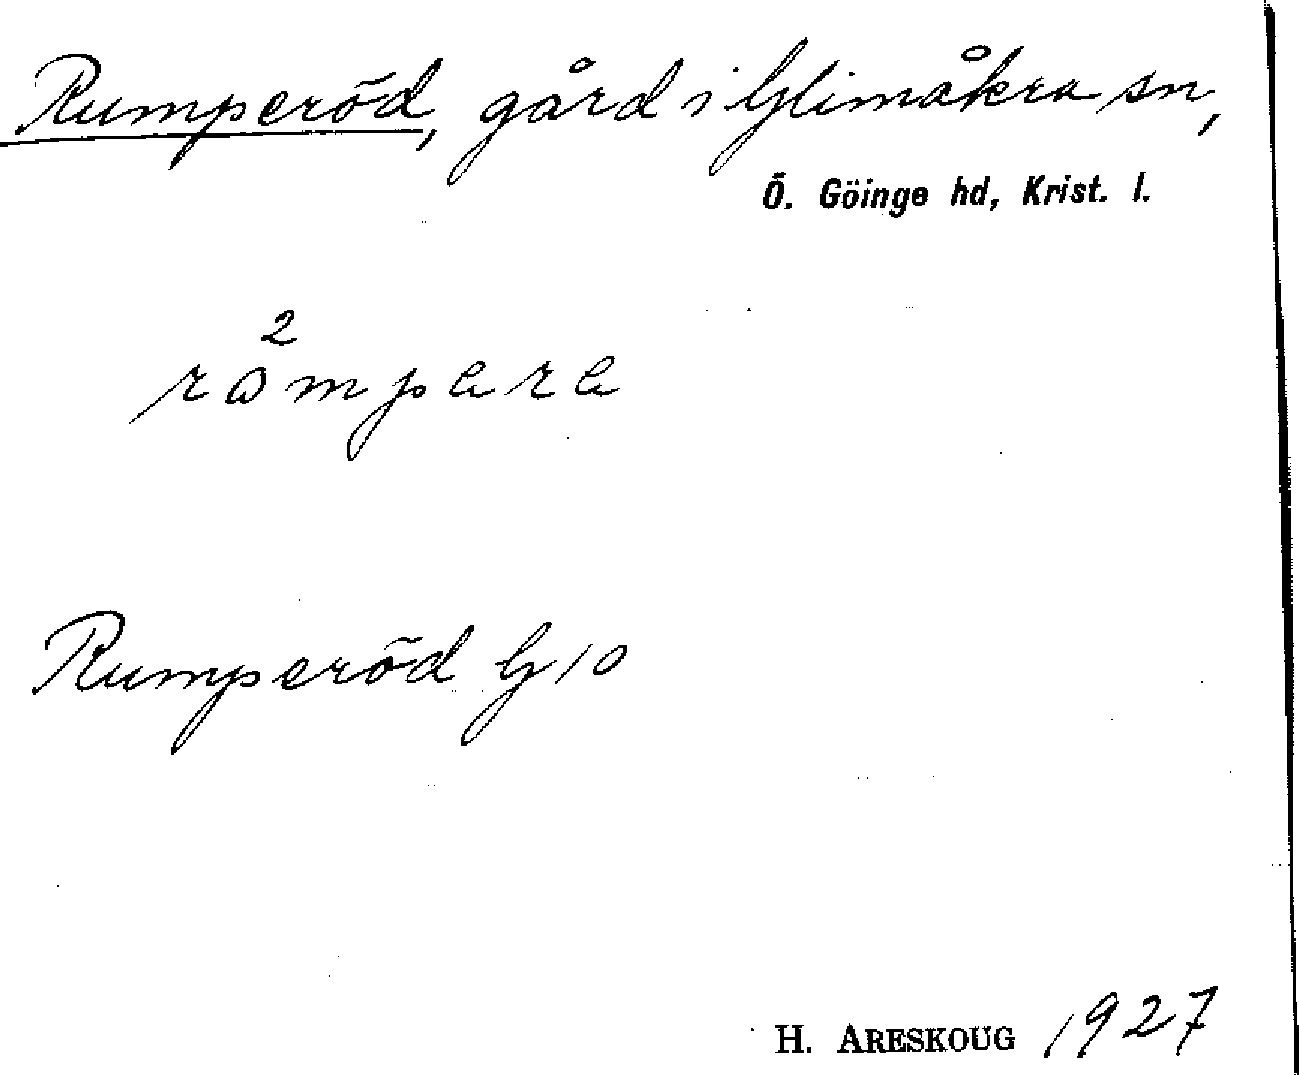 Rumperöd, gård i Glimåkra sn,
Ö. Göinge hd, Krist. l.
Rumperöd G 10
H. ARESKOUG 1927